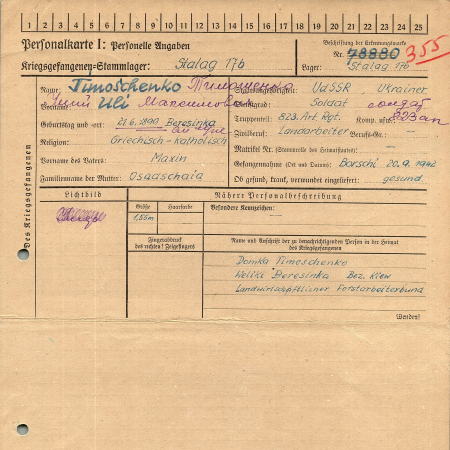 1 2 3 4 5 6 7 8 9 10 11 12 13 14 15 16 17 18 19 20 21 22 23 24 25
Personalkarte I: Personelle Angaben
Beschriftung der Erkennungsmarke
Kriegsgefangenen-Stammlager: Stalag 17b
Nr. 78880 355
Lager: Stalag 17b
Des Kriegsgefangenen
Name: Timoschenko Тимошенко
Vorname: Uli Максимович
Geburtstag und -ort: 21.6.1890 Beresinka
Religion: Griechisch-Katholisch
Vorname des Vaters: Maxin
Familienname der Mutter: Osadschaia
Staatsangehörigkeit: UdSSR Ukrainer
Dienstgrad: Soldat солдат
Truppenteil: 823. Art. Rgt. Komp. usw.: 823 ап
Zivilberuf: Landarbeiter Berufs-Gr.:
Matrikel Nr. (Stammrolle des Heimatstaates):
Gefangennahme (Ort und Datum): Borschi 20.9.1942
Ob gesund, krank, verwundet eingeliefert: gesund.
Lichtbild
Nähere Personalbeschreibung
Größe Haarfarbe Besondere Kennzeichen:
1,55m
Fingerabdruck
des rechten! Zeigefingers
Name und Anschrift der zu benachrichtigenden Person in der Heimat
des Kriegsgefangenen
Domka Timoschenko
Welika Beresinka Bez. Kiew
Wenden!